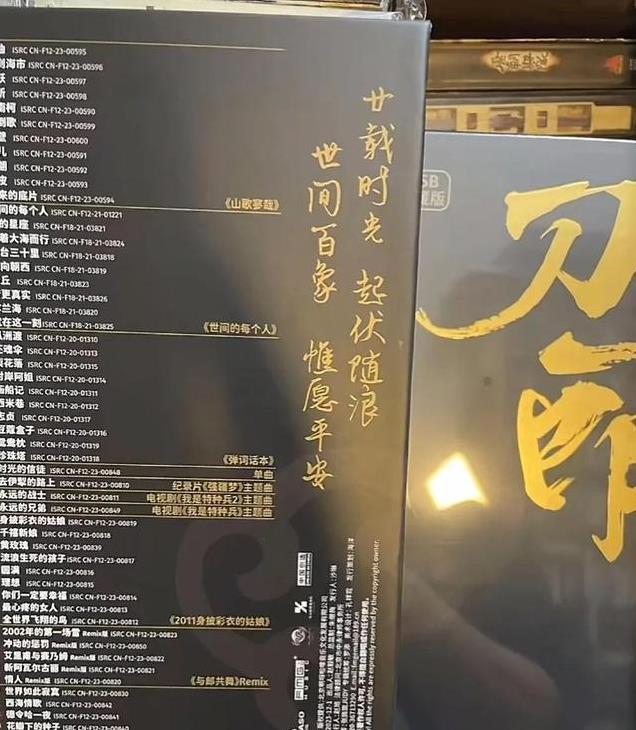 ISRC CN-F12-23-00595
海市 ISRC CN-F12-23-00596
ISRC CN-F12-23-00597
ISRC CN-F12-23-00598
南柯 ISRC CN-F12-23-00590
ISRC CN-F12-23-00599
ISRC CN-F12-23-00600
儿 ISRC CN-F12-23-00591
ISRC CN-F12-23-00592
皮 ISRC CN-F12-23-00593
来的底片 ISRC CN-F12-23-00594
《山歌寥哉》
间的每个人 ISRC CN-F12-21-01221
的星座 ISRC CN-F18-21-03821
着大海而行 ISRC CN-F18-21-03824
台三十里 ISRC CN-F18-21-03818
向朝西 ISRC CN-F18-21-03819
丘 ISRC CN-F18-21-03823
更真实 ISRC CN-F18-21-03826
兰海 ISRC CN-F18-21-03820
在这一刻 ISRC CN-F18-21-03825
《世间的每个人》
洲渡 ISRC CN-F12-20-01310
魂伞 ISRC CN-F12-20-01313
花落 ISRC CN-F12-20-01315
对岸阿姐 ISRC CN-F12-20-01314
画船记 ISRC CN-F12-20-01311
西米巷 ISRC CN-F12-20-01312
志贞 ISRC CN-F12-20-01317
豆蔻盒子 ISRC CN-F12-20-01316
鸳鸯枕 ISRC CN-F12-20-01319
珍珠塔 ISRC CN-F12-20-01318
《弹词话本》
时光的信徒 ISRC CN-F12-23-00848
单曲
去伊犁的路上 ISRC CN-F12-23-00810
纪录片《强疆梦》主题曲
永远的战士 ISRC CN-F12-23-00811
电视剧《我是特种兵2》主题曲
永远的兄弟 ISRC CN-F12-23-00849
电视剧《我是特种兵》主题曲
身披彩衣的姑娘 ISRC CN-F12-23-00819
千禧新娘 ISRC CN-F12-23-00818
黄玫瑰 ISRC CN-F12-23-00839
流浪生死的孩子 ISRC CN-F12-23-00817
圆满 ISRC CN-F12-23-00816
理想 ISRC CN-F12-23-00815
你们一定要幸福 ISRC CN-F12-23-00814
最心疼的女人 ISRC CN-F12-23-00813
全世界飞翔的鸟 ISRC CN-F12-23-00812
《2011身披彩衣的姑娘》
2002年的第一场雪 Remix版 ISRC CN-F12-23-00823
冲动的惩罚 Remix版 ISRC CN-F12-23-00850
艾里甫与赛乃姆 Remix版 ISRC CN-F12-23-00822
新阿瓦尔古丽 Remix版 ISRC CN-F12-23-00821
情人 Remix版 ISRC CN-F12-23-00820
《与郎共舞》Remix
世界如此寂寞 ISRC CN-F12-23-00830
西海情歌 ISRC CN-F12-23-00842
德令哈一夜 ISRC CN-F12-23-00840
花瓣下的种子 ISRC CN-F12-23-00841
廿载时光 起伏随浪
世间百象 惟愿平安
SB
藏版
刀郎